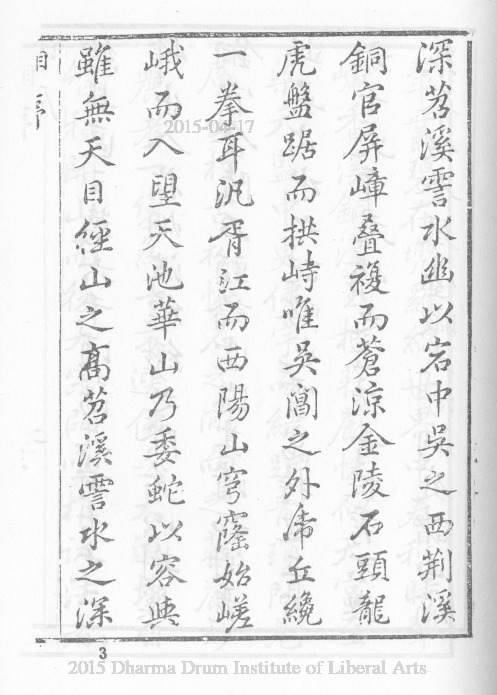 深苕溪霅水幽以宕中吳之西荆溪
銅官屏嶂叠複而蒼涼金陵石頭龍
虎盤踞而拱峙唯吳閶之外虎丘纔
一拳耳汎胥江而西陽山穹窿始嵯
峨而入望天池華山乃委蛇以容與
雖無天目經山之髙苕溪霅水之深
2015-04-17
3
2015 Dharma Drum Institute of Liberal Arts